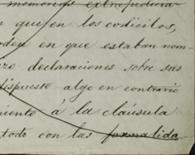 memorias extrajudicia
n que, en los codicilos,
oder en que estaban nom
re declaraciones sobre sus
dispuesto algo en contrario
miento á la cláusula
todo con las formalida